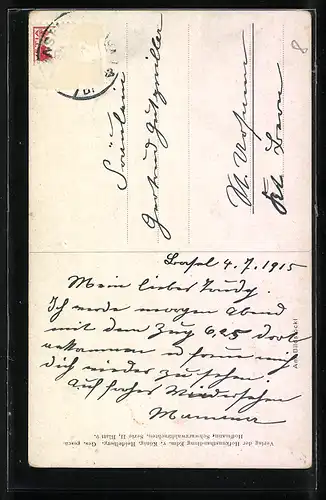 Fräulein
Gertrud Gutzwiller
St. Ursanne
Kt. Bern
8
Basel 4.7.1915
Mein liebes Trudy.
Ich werde morgen Abend
mit dem Zug 6,25 dort
ankommen u freue mich
dich wieder zu sehen
Auf frohes Wiedersehen
Mamma
Verlag der Hofkunsthandlung Edm. v. König, Heidelberg. Ges. gesch.
Hofmann, Schwarzwaldtrachten, Serie II, Blatt 6.